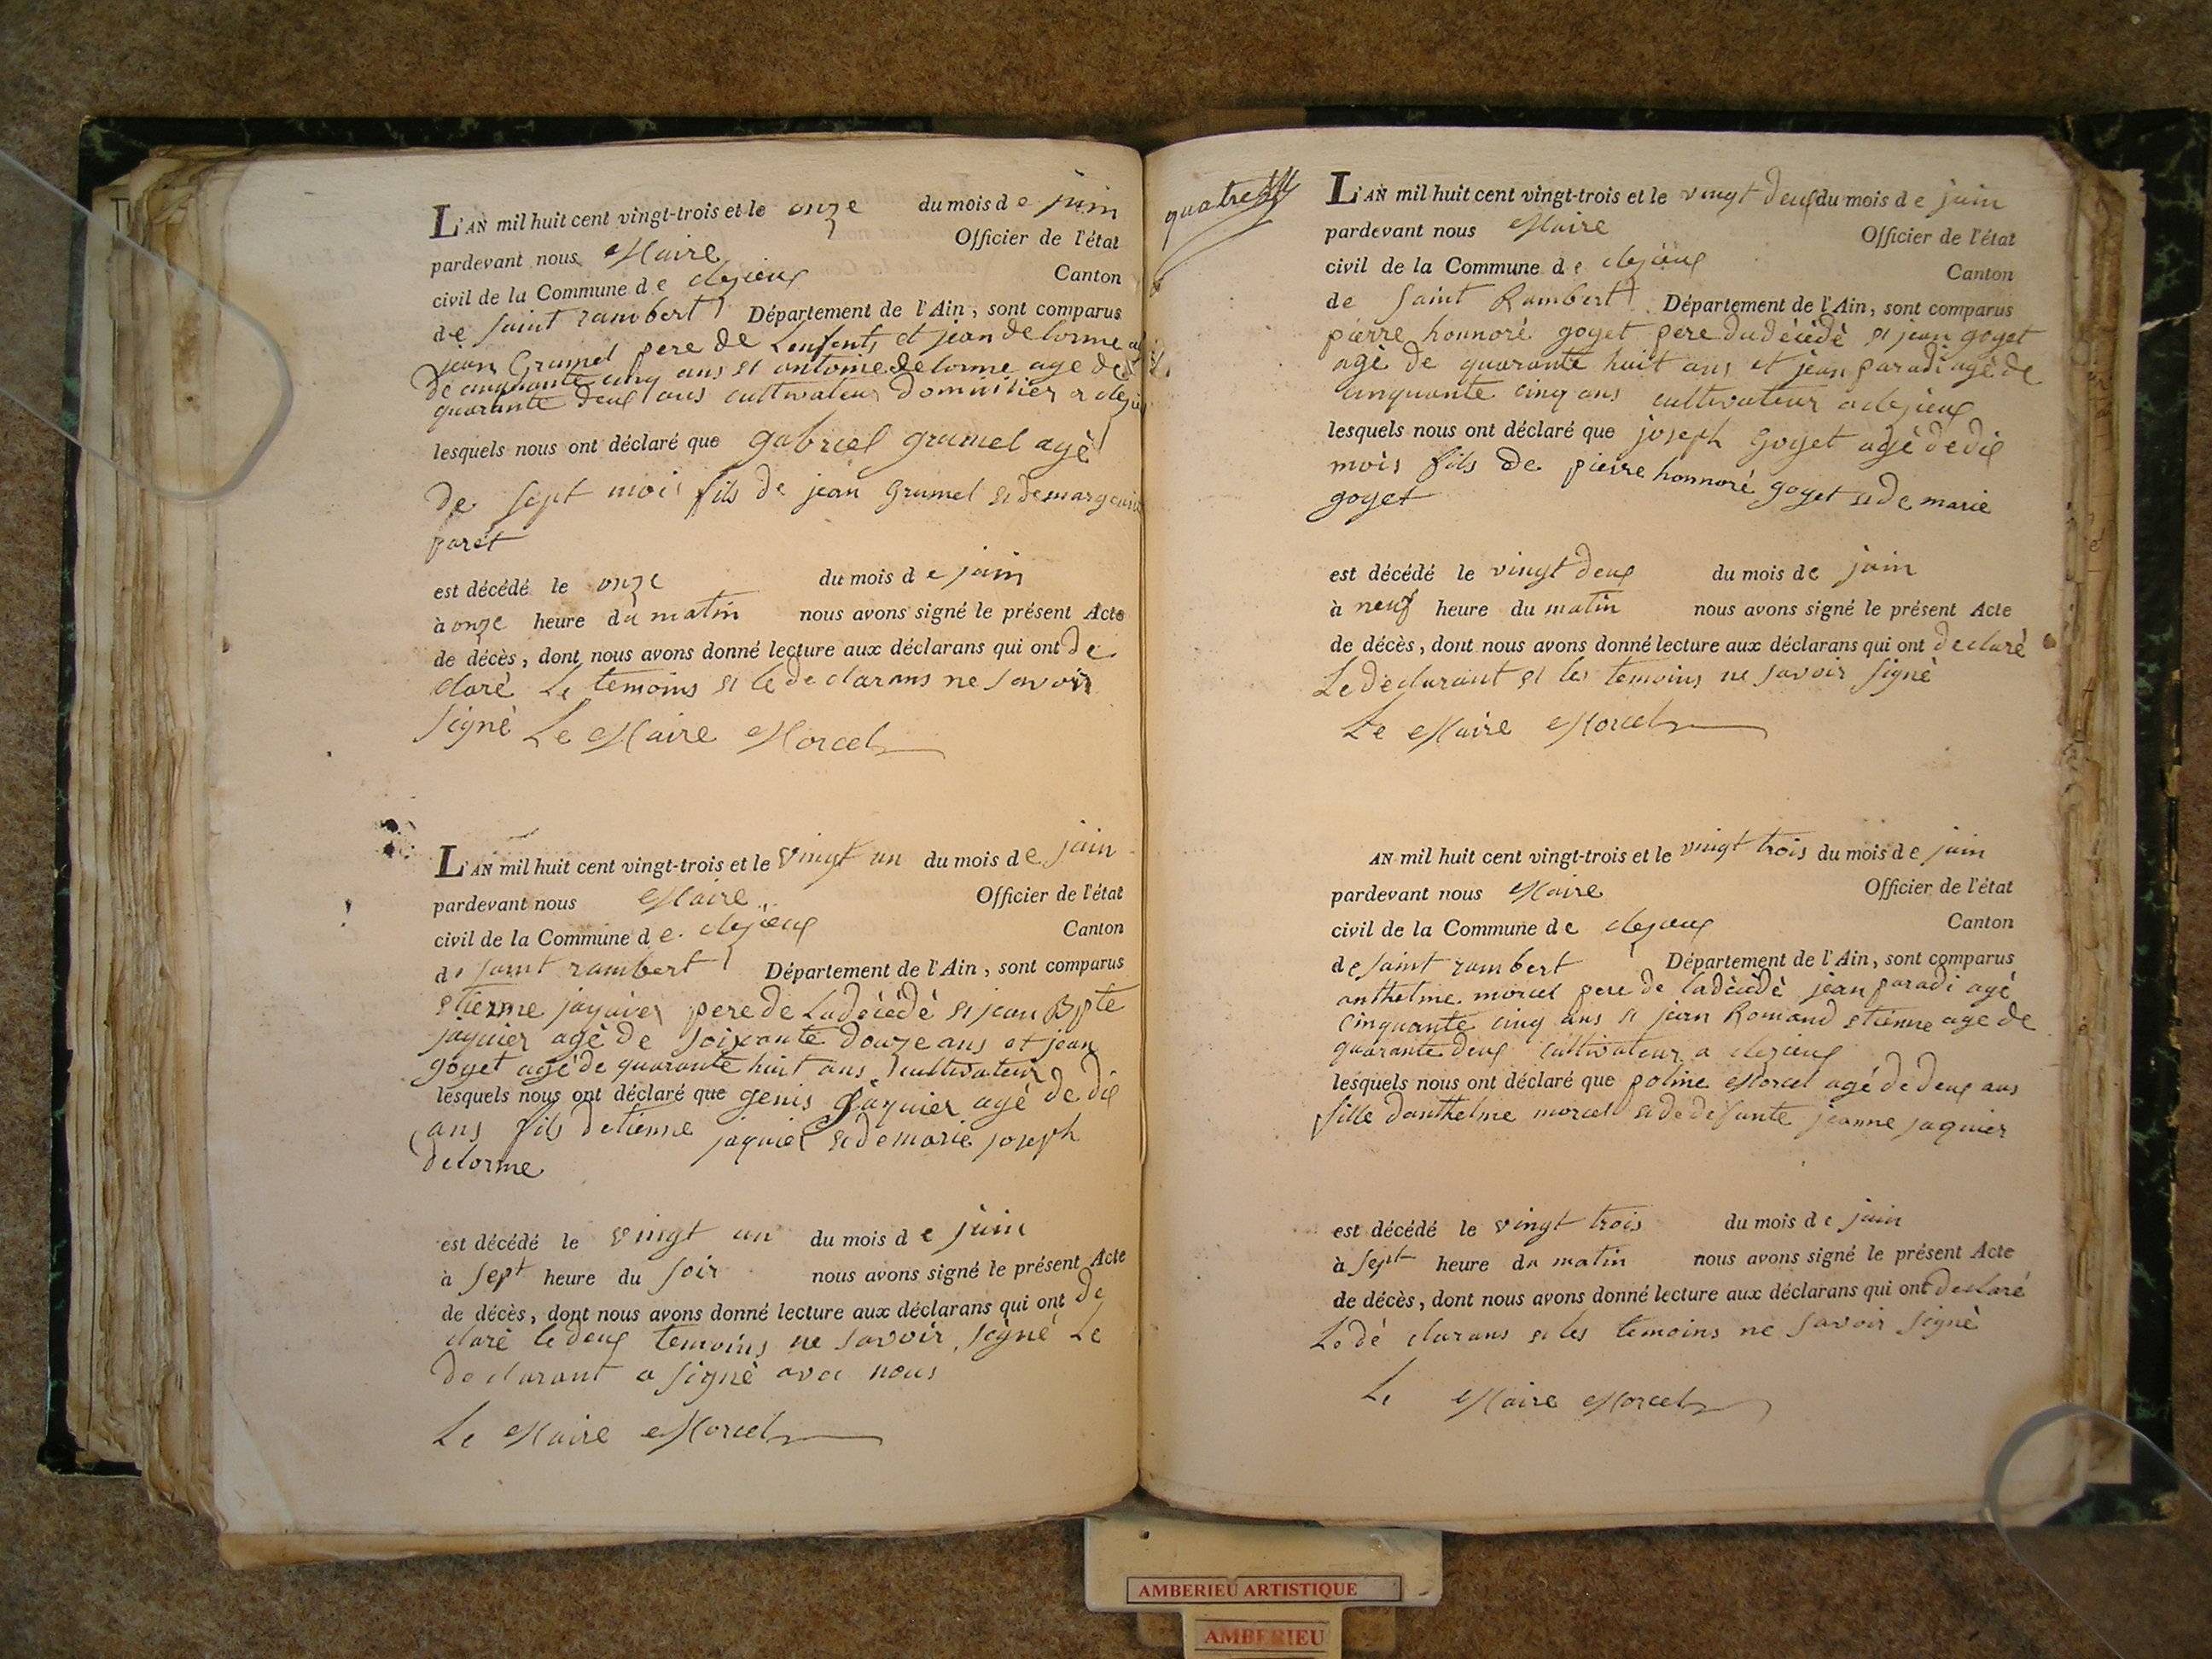 L'AN mil huit cent vingt-trois et le onze du mois de juin
pardevant nous Maire Officier de l'état
civil de la Commune de clezieux Canton
de saint rambert Département de l'Ain, sont comparus
jean Grumel pere de Lenfents et jean delorme
de cinquante cinq ans et antoine delorme age de
quarante deux ans cultivateur Domicilier a
lesquels nous ont déclaré que gabriel grumel agé
de sept mois fils de jean Grumel et de
paret
est décédé le onze du mois de juin
à onze heure du matin nous avons signé le présent Acte
de décès, dont nous avons donné lecture aux déclarans qui ont dé
claré Le temoins et le declarans ne savoir
signé Le Maire Morcel
L'AN mil huit cent vingt-trois et le vingt un du mois de juin
pardevant nous Maire Officier de l'état
civil de la Commune de clezieux Canton
de saint rambert Département de l'Ain, sont comparus
etienne jaquier pere de Ladécédé et jean Bpte
jaquier agé de soixante douze ans et jean
goyet agé de quarante huit ans cultivateur
lesquels nous ont déclaré que genis jaquier agé de dix
ans fils detienne jaquier et de marie joseph
delorme
est décédé le vingt un du mois de juin
à sept heure du soir nous avons signé le présent Acte
de décès, dont nous avons donné lecture aux déclarans qui ont de
claré le deux temoins ne savoir signé Le
declarant a signé avec nous
Le Maire Morcel
quatre
L'AN mil huit cent vingt-trois et le vingt deux du mois de juin
pardevant nous Maire Officier de l'état
civil de la Commune de clezieux Canton
de saint Rambert Département de l'Ain, sont comparus
pierre honnoré goyet pere du décédé et jean goyet
agé de quarante huit ans et jean paradi agé de
cinquante cinq ans cultivateur a clezieux
lesquels nous ont déclaré que joseph Goyet agé de dix
mois fils de pierre honnoré goyet et de marie
goyet
est décédé le vingt deux du mois de juin
à neuf heure du matin nous avons signé le présent Acte
de décès, dont nous avons donné lecture aux déclarans qui ont declaré
Le declarant et les temoins ne savoir signé
Le Maire Morcel
AN mil huit cent vingt-trois et le vingt trois du mois de juin
pardevant nous Maire Officier de l'état
civil de la Commune de clezieux Canton
de saint rambert Département de l'Ain, sont comparus
anthelme morcel pere de ladécédé jean paradi agé
cinquante cinq ans et jean Romand etienne age de
quarante deux cultivateur a clezieux
lesquels nous ont déclaré que poline Morcel agé de deux ans
fille danthelme morcel et de defunte jeanne jaquier
est décédé le vingt trois du mois de juin
à sept heure du matin nous avons signé le présent Acte
de décès, dont nous avons donné lecture aux déclarans qui ont declaré
Le déclarans et les temoins ne savoir signé
Le Maire Morcel
AMBERIEU ARTISTIQUE
AMBERIEU